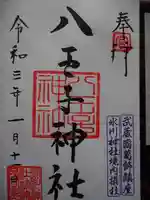 奉拝
八王子神社
令和三年一月十
武蔵國葛飾鎮座
氷川神社境内摂社